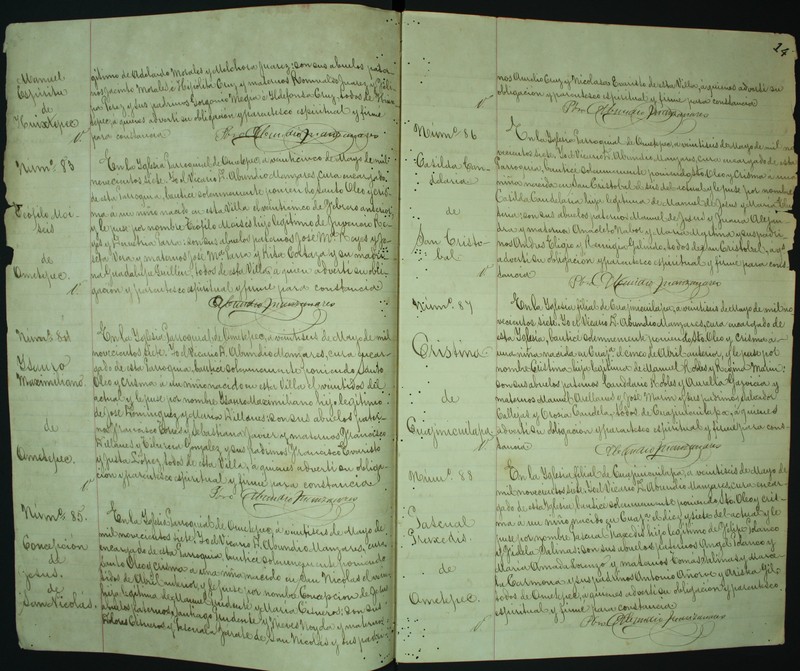 Manuel
Espiritu
de
Huixtepec
gitimo de Adelaido Morales y Melchora Juarez: son sus abuelos pater-
nos Jacinto Morales e Hipolita Cruz y maternos Romualdo Juarez y
Vera y sus padrinos Gregorio Mejia e Ildefonsa Cruz, todos de Huix-
tepec, a quienes adverti su obligacion y parentesco espiritual y firmé
para constancia
Pbro. Abundio Manzanares
Núm.º 83
Teofilo Moi-
sés
de
Ometepec.
En la Yglesia Parroquial de Ometepec, a veinticinco de Mayo de mil
novecientos siete: Yo el Vicario F. Abundio Manzanares, cura encargado
de esta Parroquia, bauticé solemnemente poniendo Santo Oleo y cris-
ma a un niño nacido en esta Villa el veintiocho de Febrero anterior,
y le puse por nombre Teofilo Moisés hijo legitimo de
son sus abuelos paternos José M.ª Reyes y
Vera y maternos José M.ª Parra y Rita Cortaza y su madri-
na Guadalupe Guillen, todos de esta Villa, a quien adverti su obli-
gación y parentesco espiritual y firmé para constancia
Abundio Manzanares
Núm.º 84
Ysauro
Maximiliano.
de
Ometepec.
En la Yglesia Parroquial de Ometepec, a veintiseis de Mayo de mil
novecientos siete: Yo el Vicario F. Abundio Manzanares, cura encar-
gado de esta Parroquia, bauticé solemnemente poniendo Santo
Oleo y Crisma a un niño nacido en esta Villa el veintidos del
actual y le puse por nombre Ysauro Maximiliano hijo legitimo
de José Dominguez y Maria Villanes: son sus abuelos pater-
nos Francisco y Sebastiana Javier y maternos Francisco
Villanes y Eduvica Gonzalez y sus padrinos Francisco Evaristo
y Justa Lopez, todos de esta Villa, a quienes adverti su obliga-
cion y parentesco espiritual y firmé para constancia
Pbro. Abundio Manzanares
Núm.º 85.
Concepción
de
Jesus.
de
San Nicolás.
En la Yglesia Parroquial de Ometepec, a veintiseis de Mayo de
mil novecientos siete: Yo el Vicario F. Abundio Manzanares, cura
encargado de esta Parroquia, bauticé solemnemente poniendo
Santo Oleo y Crisma a una niña nacida en San Nicolas el
de Abril anterior, y le puse por nombre Concepcion de Jesus
hija legitima de Manuel Prudente y Maria Cisneros: son sus
abuelos paternos Santiago Prudente y Nieves Noyola y maternos
Cisneros y Pascuala Zarate de San Nicolás y sus padri-
14
nos Aurelio Cruz y Nicolasa Evaristo de esta Villa, a quienes adverti su
obligacion y parentesco espiritual y firmé para constancia
Pbro. Abundio Manzanares
Núm.º 86
Casilda Can-
delaria
de
San Cristo-
bal
En la Yglesia Parroquial de Ometepec, a veintiseis de Mayo de mil no-
vecientos siete: Yo el Vicario F. Abundio Manzanares, cura encargado de esta
Parroquia, bauticé solemnemente poniendo Sto Oleo y Crisma a una
niña nacida en San Cristobal el seis del actual y le puse por nombre
Casilda Candelaria hija legitima de Manuel de Jesus y Maria
son sus abuelos paternos Manuel de Jesus y Juana Alejan-
dra y maternos Anacleto Nabor y Maria y sus padri-
nos Onofre Eligio y Remigia Galindo, todos de San Cristobal, a q.
adverti su obligacion y parentesco espiritual y firmé para cons-
tancia
Pbro. Abundio Manzanares
Núm.º 87
Cristina
de
Cuajinicuilapa.
En la Yglesia filial de Cuajinicuilapa, a veintiseis de Mayo de mil no-
vecientos siete: Yo el Vicario F. Abundio Manzanares, cura encargado de
esta Yglesia, bauticé solemnemente poniendo Sto Oleo y Crisma a
una niña nacida en Cuaj.ª el cinco de Abril anterior, y le puse por
nombre Cristina hija legitima de Manuel Robles y Regina Marin:
son sus abuelos paternos Candelario Robles y Aurelia Garcia y
maternos Manuel Arellanes y José Marin y sus padrinos Salvador
Callejas y Crosia Candela, todos de Cuajinicuilapa, a quienes
adverti su obligacion y parentesco espiritual y firmé para cons-
tancia
Abundio Manzanares
Núm.º 88
Pascual
Praxedis.
de
Ometepec.
En la Yglesia filial de Cuajinicuilapa, a veintiseis de Mayo de
mil novecientos siete: Yo el Vicario F. Abundio Manzanares, cura encar-
gado de esta Yglesia, bauticé solemnemente poniendo Sto Oleo y cris-
ma a un niño nacido en Cuaj.ª el diez y siete del actual y le
puse por nombre Pascual Praxedis hijo legitimo de Felipe Polanco
y Fidela Salinas: son sus abuelos paternos Angel Polanco y
Maria Amada Lorenzo y maternos Tomas Salinas y Marce-
la Carmona y sus padrinos Antonio Añorve y
todos de Ometepec, a quienes adverti su obligacion y parentesco
espiritual y firmé para constancia
Pbro. Abundio Manzanares